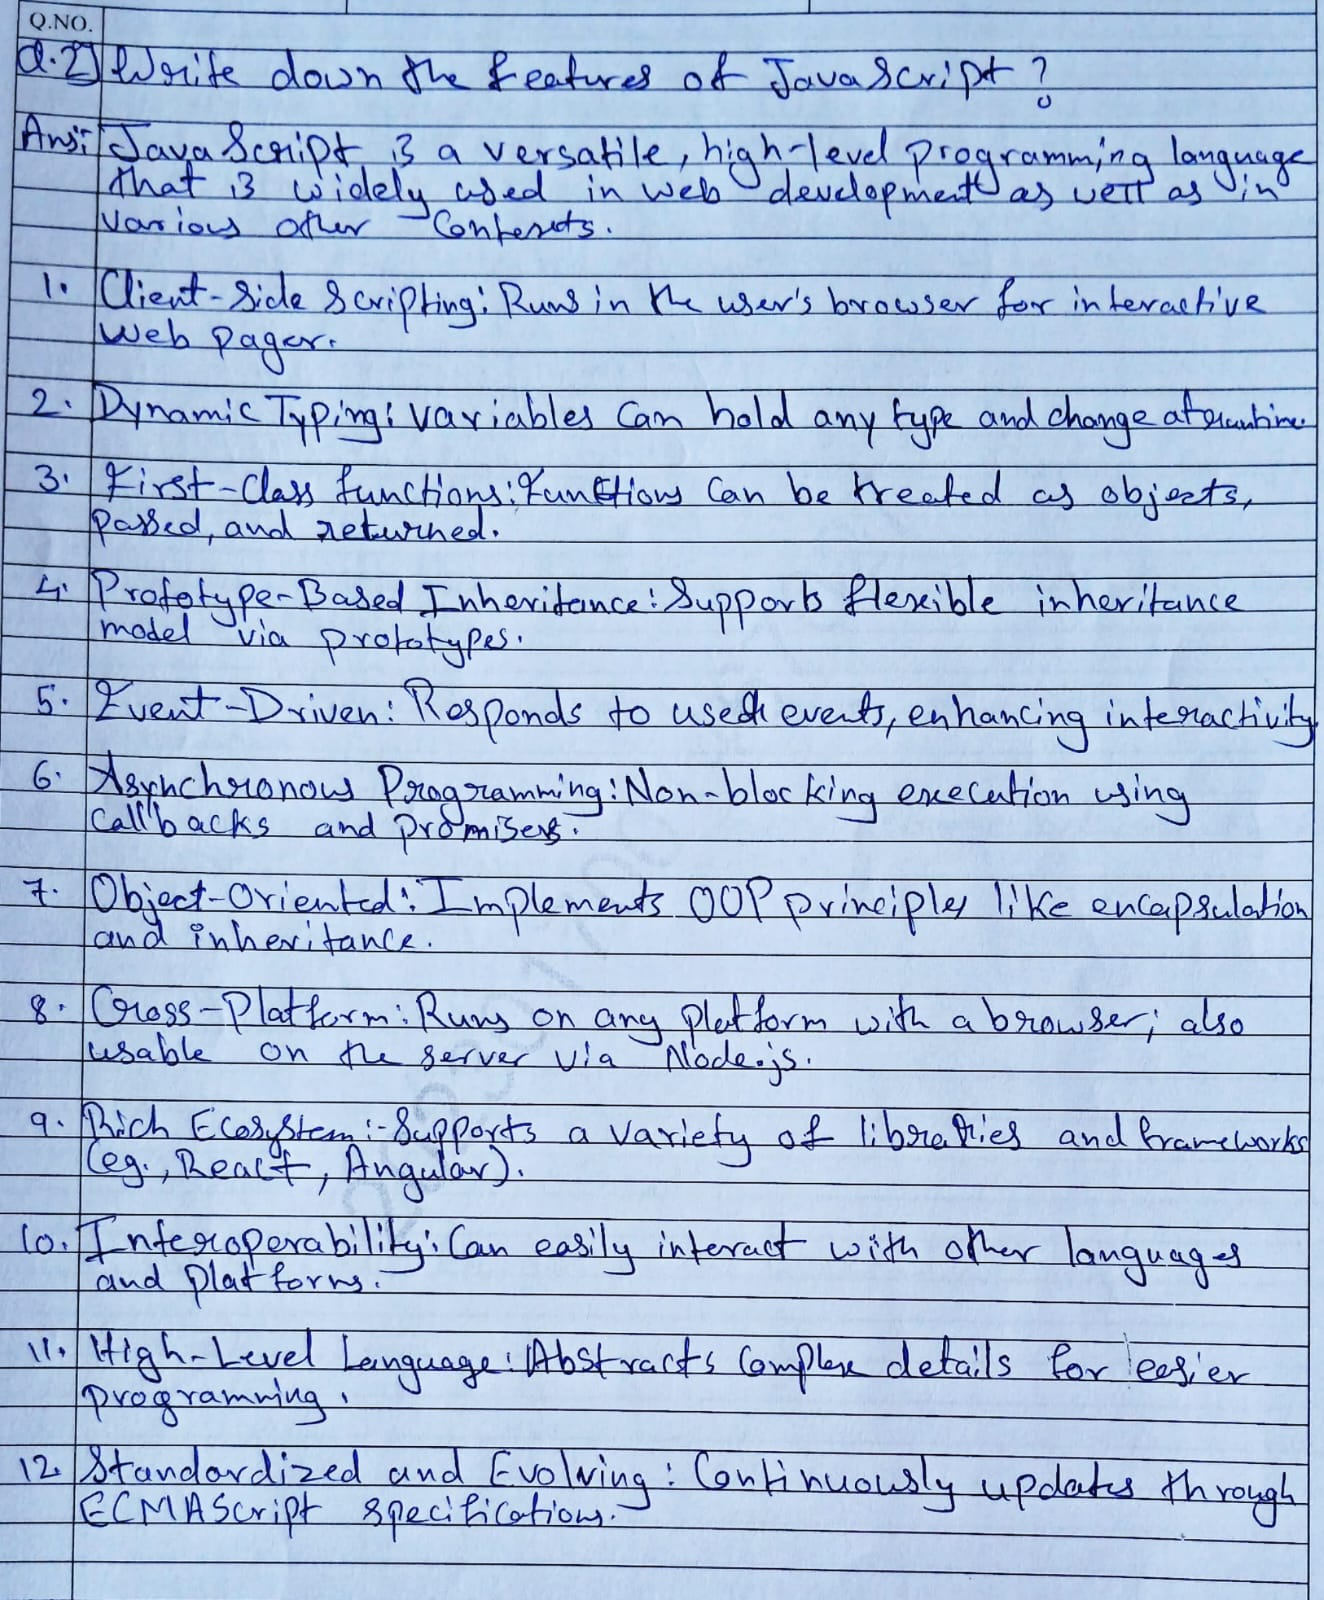 Q.NO.
Q.2] Write down the features of JavaScript?
Ans: JavaScript is a versatile, high-level programming language
that is widely used in web development as well as in
various other Contexts.
1. Client-Side Scripting: Runs in the user's browser for interactive
web pages.
2. Dynamic Typing: variables Can hold any type and change at runtime.
3. First-Class functions: Functions Can be treated as objects,
passed, and returned.
4. Prototype-Based Inheritance: Supports flexible inheritance
model via prototypes.
5. Event-Driven: Responds to user events, enhancing interactivity
6. Asynchronous Programming: Non-blocking execution using
Callbacks and promises.
7. Object-Oriented: Implements OOP principles like encapsulation
and inheritance.
8. Cross-Platform: Runs on any platform with a browser; also
usable on the server via Node.js.
9. Rich Ecosystem:- Supports a variety of libraries and frameworks
(eg., React, Angular).
10. Interoperability: Can easily interact with other languages
and platforms.
11. High-Level Language: Abstracts Complex details for easier
programming.
12 Standardized and Evolving: Continuously updates through
ECMAScript specifications.